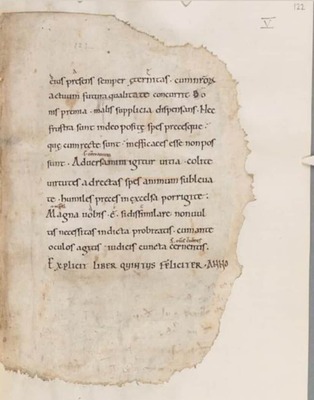 122
V
eius presens semper ęternitas. cum nrorum
actuum futura qualitate concurrit. bo
nis premia. malis supplicia dispensans. Nec
frustra sunt in deo positę spes precesque.
quę cum recte sunt. inefficaces esse non pos
sunt. Aduersamini igitur uitia. colite
uirtutes ad rectas spes animum subleua
te. humiles preces in excelsa porrigite.
Magna uobis ē. si dissimilare non uul
tis necessitas indicta probitatis. cum ante
oculos agitis iudicis cuncta cernentis.
EXPLICIT LIBER QUINTUS FELICITER.